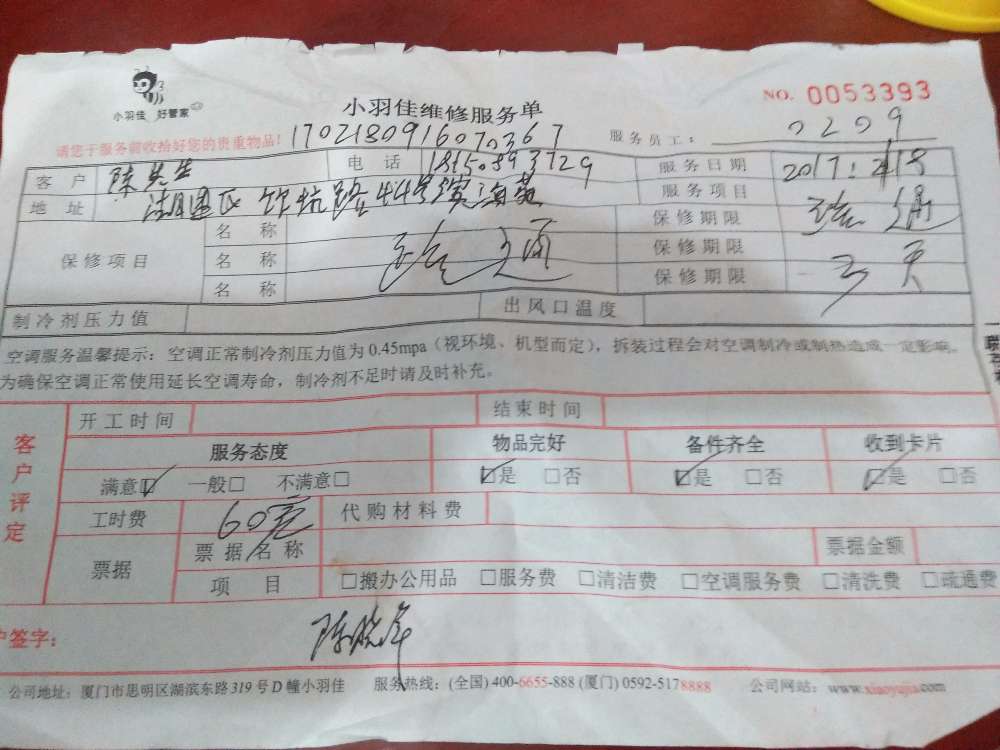 小羽佳 好管家
小羽佳维修服务单
NO. 0053393
请您于服务前收拾好您的贵重物品!
1702180916070367
服务员工: 0209
客户 陈先生 电话 18150893729 服务日期 2017.2.18
地址 路44号 服务项目 疏通
保修项目 名称 疏通 保修期限
名称 保修期限 3天
名称 保修期限
制冷剂压力值 出风口温度
空调服务温馨提示:空调正常制冷剂压力值为0.45mpa(视环境、机型而定),拆装过程会对空调制冷或制热造成一定影响。
为确保空调正常使用延长空调寿命,制冷剂不足时请及时补充。
客户评定
开工时间 结束时间
服务态度 物品完好 备件齐全 收到卡片
满意☑ 一般□ 不满意□ ☑是 □否 ☑是 □否 ☑是 □否
工时费 60元 代购材料费
票据 票据名称 票据金额
项目 □搬办公用品 □服务费 □清洁费 □空调服务费 □清洗费 □疏通费
户签字: 陈晓
公司地址:厦门市思明区湖滨东路319号D幢小羽佳 服务热线:(全国) 400-6655-888 (厦门) 0592-5178888 公司网站:www.xiaoyujia.com